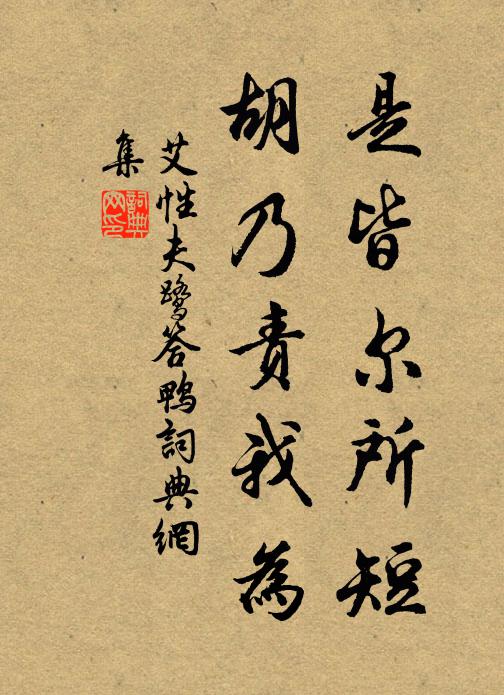 是皆尔所短
胡乃责我為
艾性夫鹭答鸭詞典網
集
詞典
网印